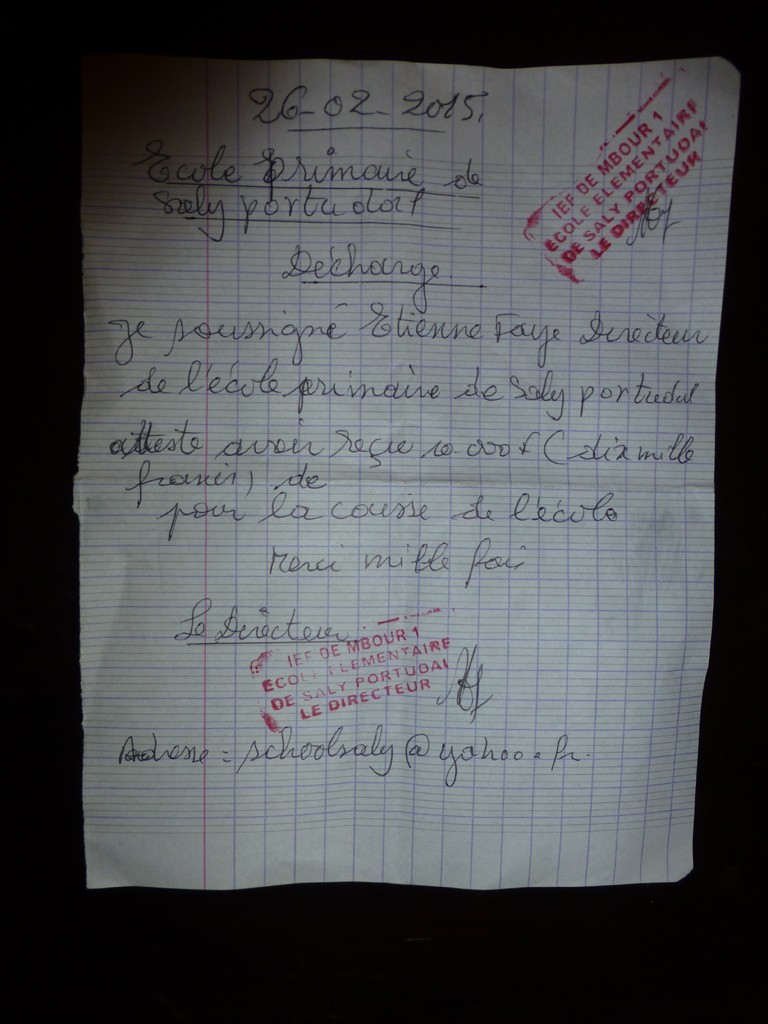 26-02-2015.
Ecole primaire de
Saly portudal
IEF DE MBOUR 1
ECOLE ELEMENTAIRE
DE SALY PORTUDAL
LE DIRECTEUR
Décharge
Je soussigné Etienne Faye Directeur
de l'école primaire de Saly portudal
atteste avoir reçue 10.000f (dix mille
francs) de
pour la course de l'école
Merci mille fois
Le Directeur
IEF DE MBOUR 1
ECOLE ELEMENTAIRE
DE SALY PORTUDAL
LE DIRECTEUR
Adresse = schoolsaly@yahoo.fr.